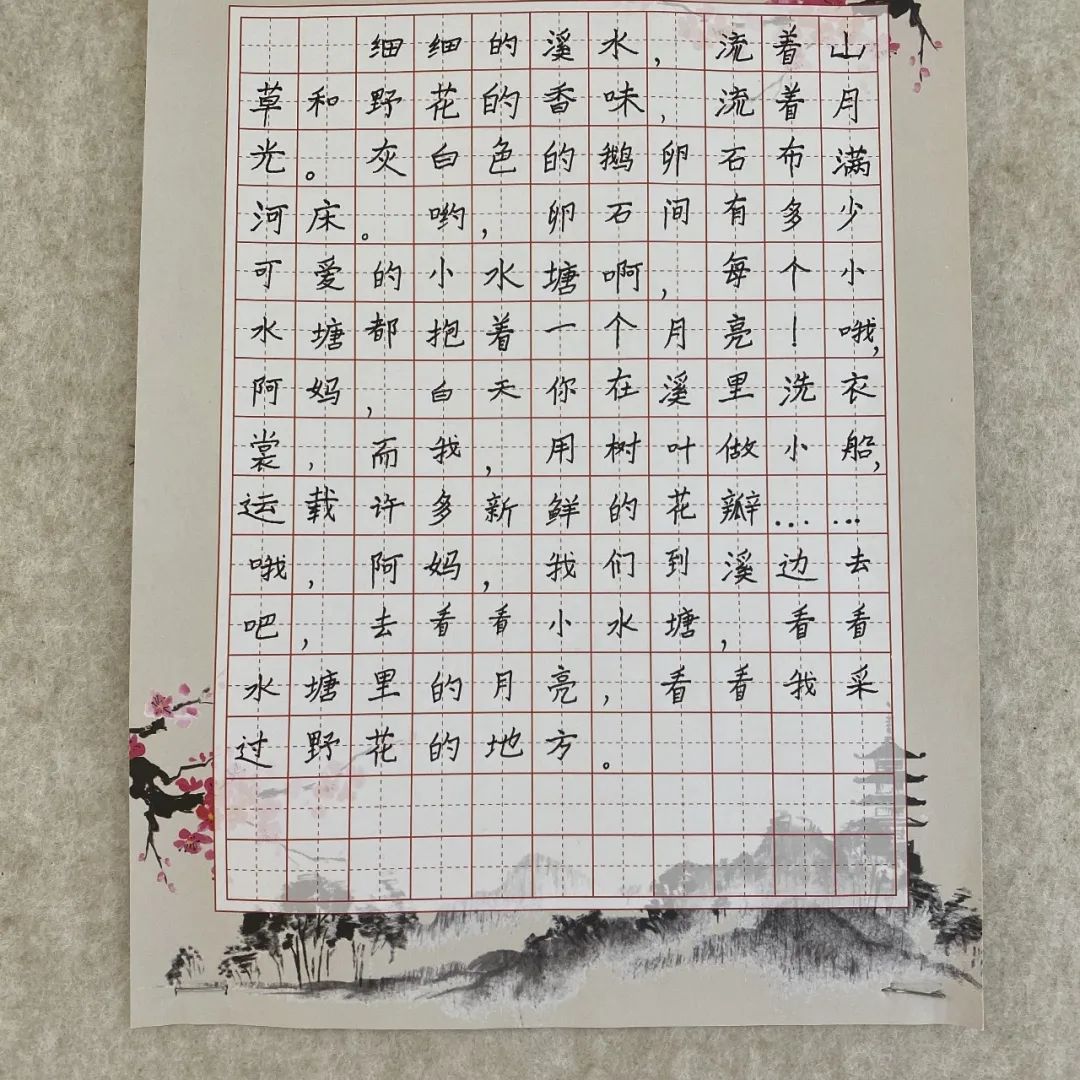 细细的溪水，流着山
草和野花的香味，流着月
光。灰白色的鹅卵石布满
河床。哟，卵石间有多少
可爱的小水塘啊，每个小
水塘都抱着一个月亮！哦，
阿妈，白天你在溪里洗衣
裳，而我，用树叶做小船，
运载许多新鲜的花瓣……
哦，阿妈，我们到溪边去
吧，去看看小水塘，看看
水塘里的月亮，看看我采
过野花的地方。